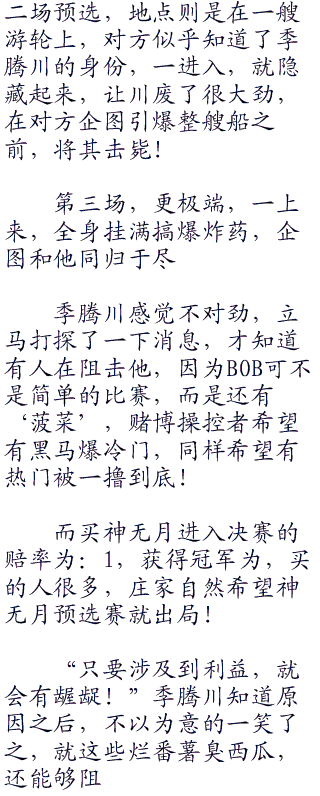 二场预选，地点则是在一艘
游轮上，对方似乎知道了季
腾川的身份，一进入，就隐
藏起来，让川废了很大劲，
在对方企图引爆整艘船之
前，将其击毙！
第三场，更极端，一上
来，全身挂满搞爆炸药，企
图和他同归于尽
季腾川感觉不对劲，立
马打探了一下消息，才知道
有人在阻击他，因为BOB可不
是简单的比赛，而是还有
‘菠菜’，赌博操控者希望
有黑马爆冷门，同样希望有
热门被一撸到底！
而买神无月进入决赛的
赔率为：1，获得冠军为，买
的人很多，庄家自然希望神
无月预选赛就出局！
“只要涉及到利益，就
会有龌龊！”季腾川知道原
因之后，不以为意的一笑了
之，就这些烂番薯臭西瓜，
还能够阻